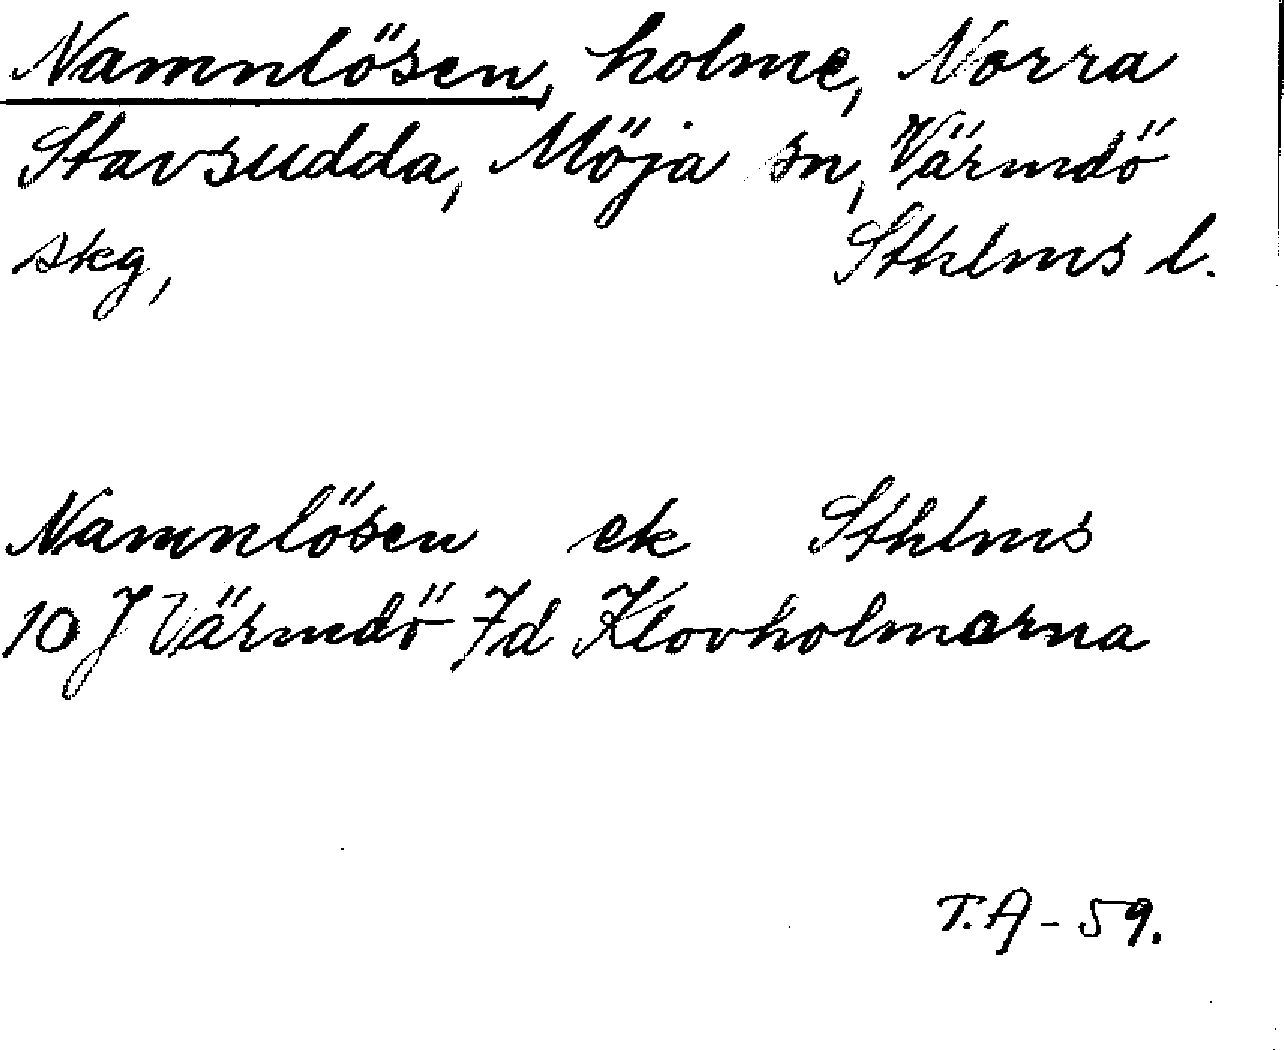 Namnlösen, holme, Norra
Stavsudda, Möja sn, Värmdö
skg, Sthlms l.
Namnlösen ek Sthlms
10 J Värmdö 7d Klovholmarna
T.A - 59.